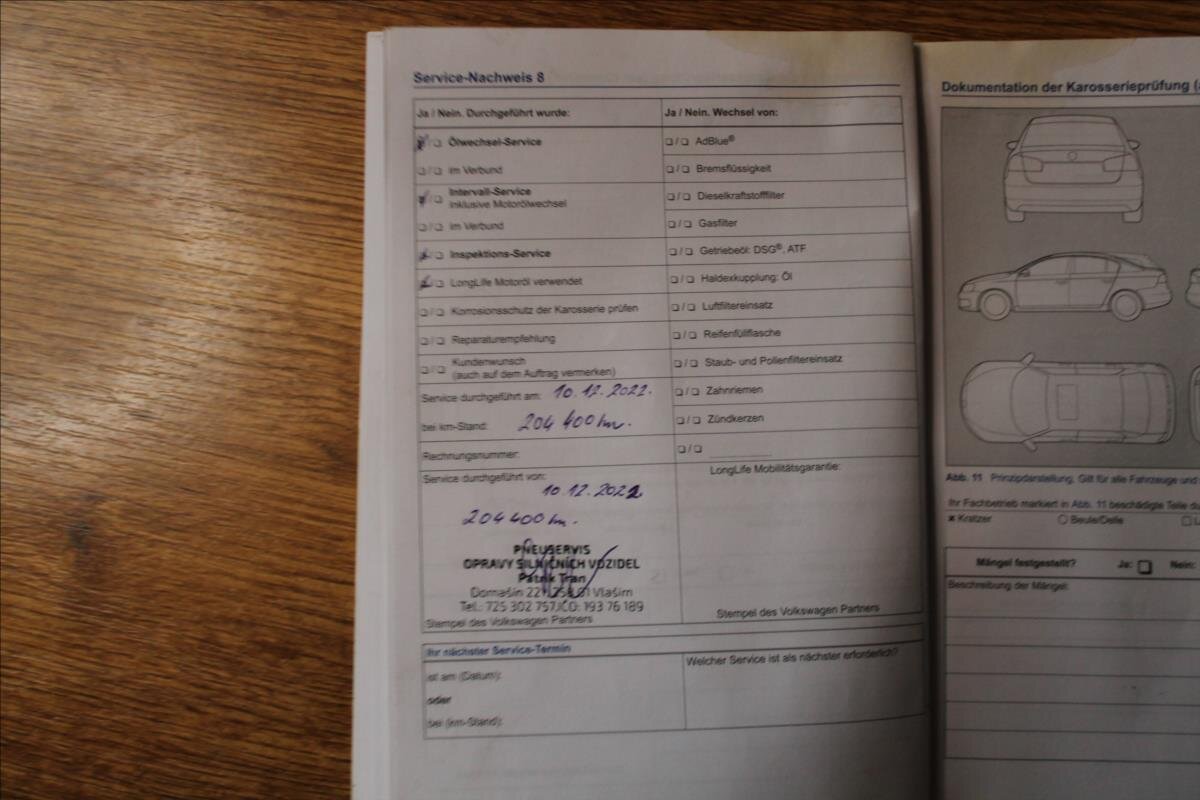 Service-Nachweis 8
Ja / Nein. Durchgeführt wurde:
Ölwechsel-Service
im Verbund
Intervall-Service
inklusive Motorölwechsel
im Verbund
Inspektions-Service
LongLife Motoröl verwendet
Korrosionsschutz der Karosserie prüfen
Reparaturempfehlung
Kundenwunsch
(auch auf dem Auftrag vermerken)
Service durchgeführt am: 10.12.2022.
bei km-Stand: 204 400 km.
Rechnungsnummer:
Service durchgeführt von:
10.12.2022
204 400 km.
PNEUSERVIS
OPRAVY SILNIČNÍCH VOZIDEL
Patrik Tran
Domašín 22, 258 01 Vlašim
Tel.: 725 302 757, IČO: 193 76 189
Stempel des Volkswagen Partners
Ja / Nein. Wechsel von:
AdBlue®
Bremsflüssigkeit
Dieselkraftstofffilter
Gasfilter
Getriebeöl: DSG®, ATF
Haldexkupplung: Öl
Luftfiltereinsatz
Reifenfüllflasche
Staub- und Pollenfiltereinsatz
Zahnriemen
Zündkerzen
LongLife Mobilitätsgarantie:
Stempel des Volkswagen Partners
Ihr nächster Service-Termin
ist am (Datum):
oder
bei (km-Stand):
Welcher Service ist als nächster erforderlich?
Dokumentation der Karosserieprüfung
Abb. 11 Prinzipdarstellung. Gilt für alle Fahrzeuge und
Ihr Fachbetrieb markiert in Abb. 11 beschädigte Teile
Kratzer
Beule/Delle
Mängel festgestellt? Ja: Nein:
Beschreibung der Mängel: